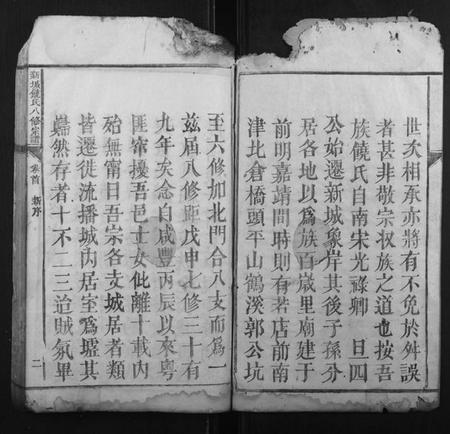 世次相承亦將有不免於舛誤
者甚非敬宗收族之道也按吾
族饒氏自南宋光祿卿 旦四
公始遷新城象岸其後子孫分
居各地以為族百歲里廟建于
前明嘉靖間時則有若店前南
津北倉橋頭平山鶴溪郭公坑
至六修加北門合八支而為一
茲屆八修距戊申七修三十有
九年矣念自咸豐丙辰以來粵
匪竄擾吾邑士女仳離十載內
殆無甯日吾宗各支城居者類
皆遷徙流播城內居室為墟其
巋然存者十不二三迨賊氛畢
新城饒氏八修宗譜
卷首 新序
二